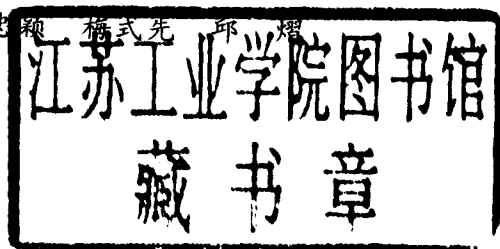 颖 梅式先 邱 熠
江苏工业学院图书馆
藏书章